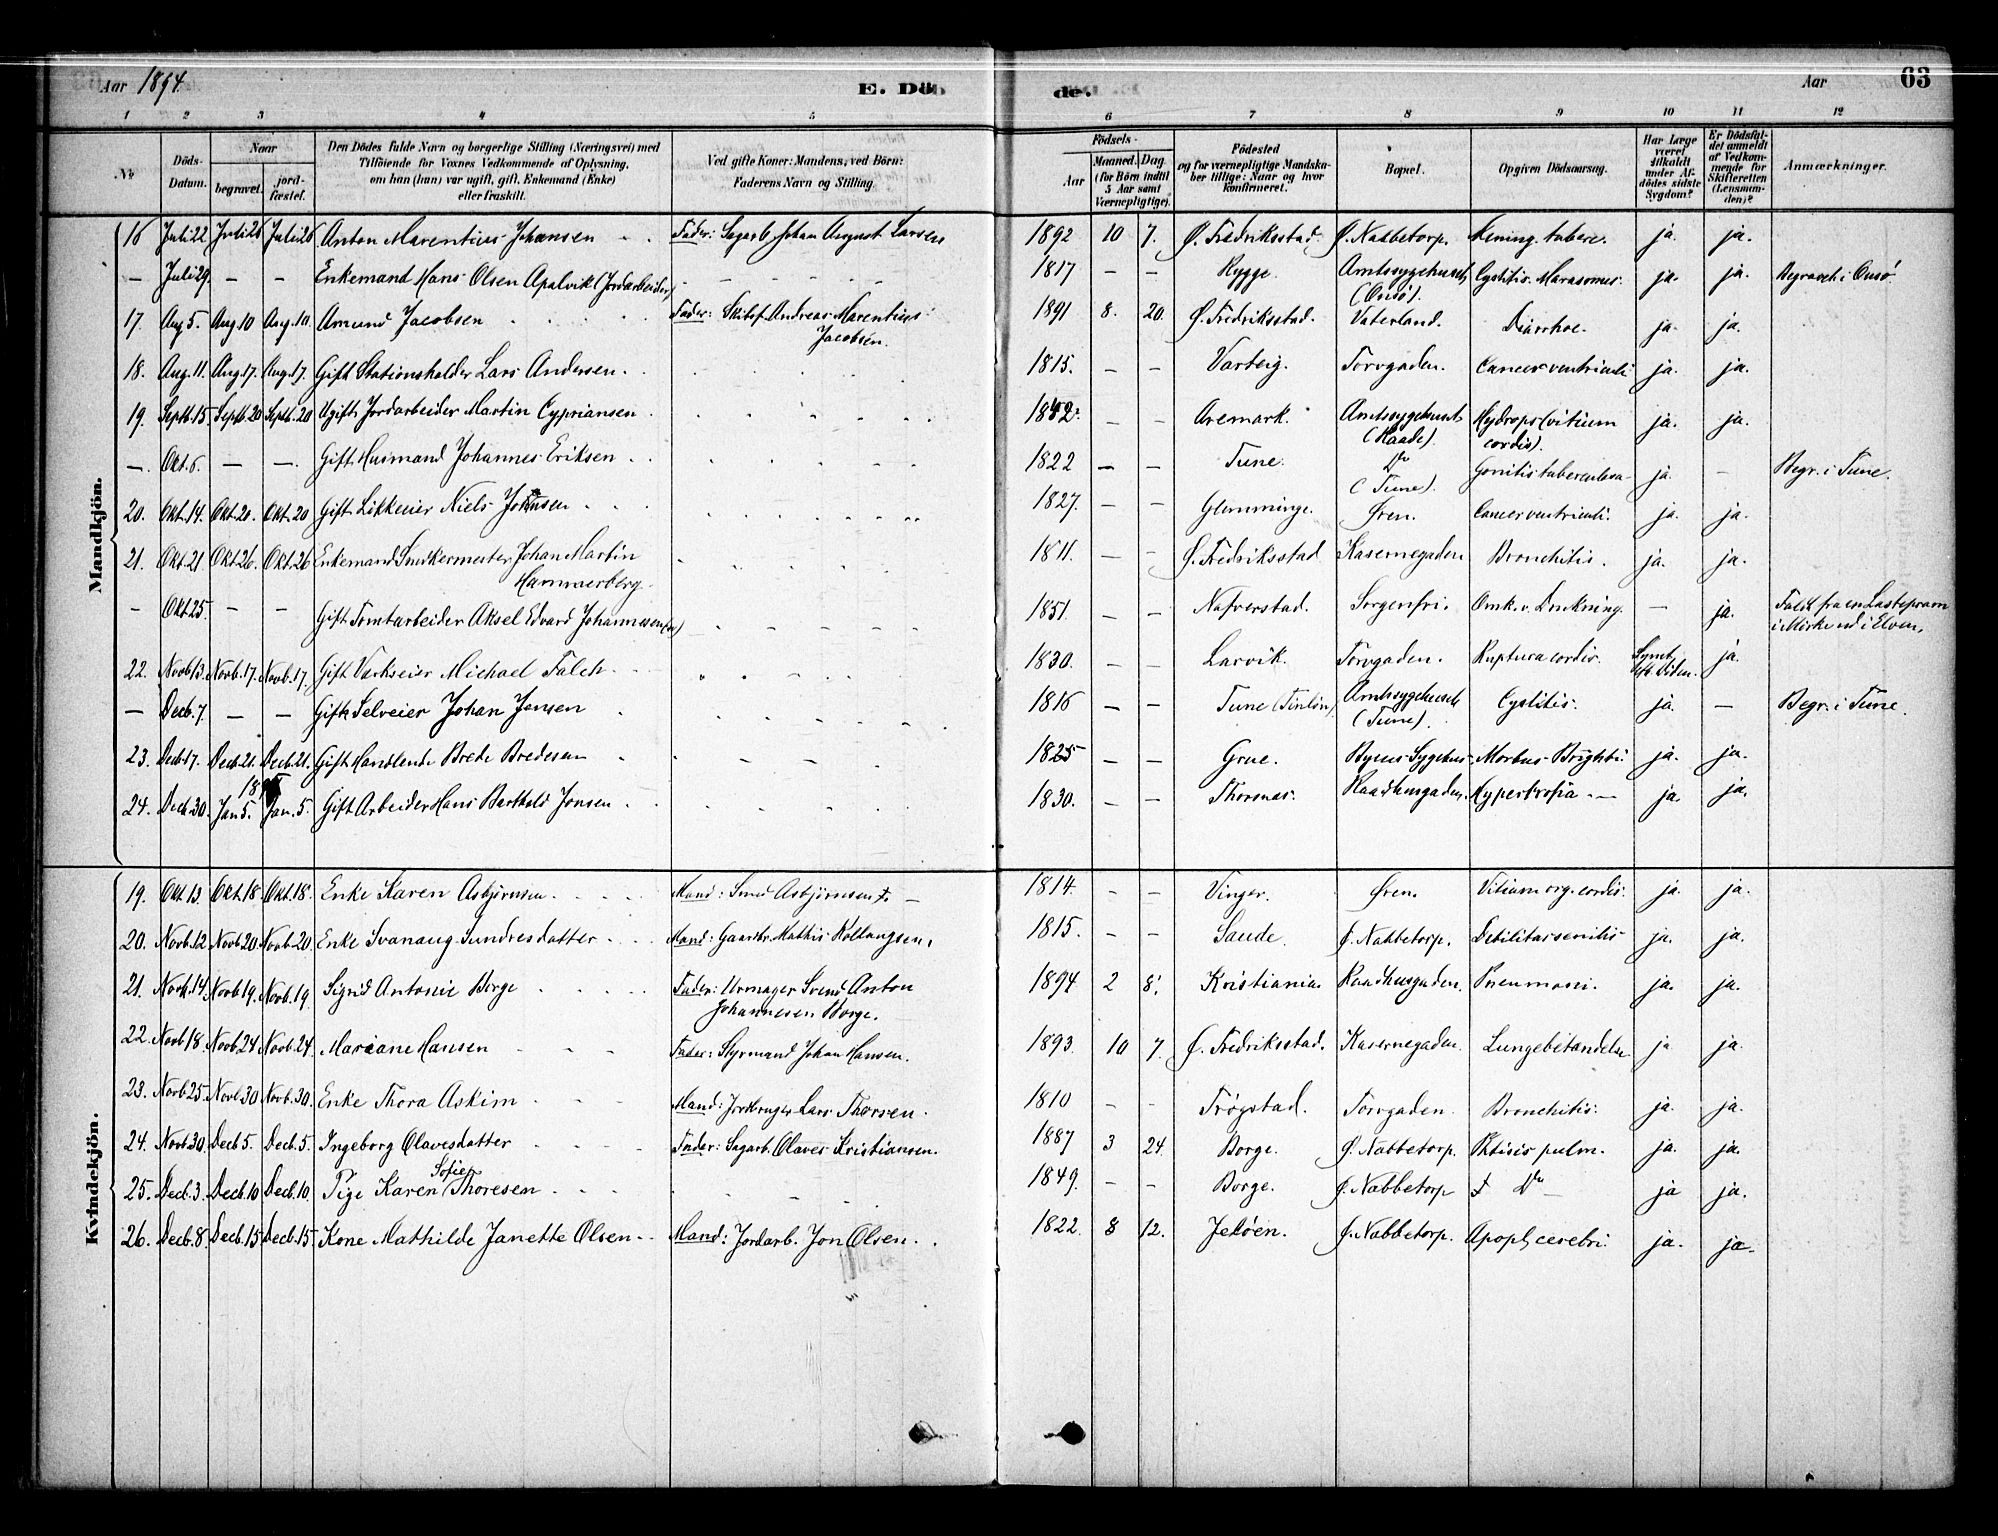 Aar 1894. E. Döde. Aar 63
1 2 3 4 5 6 7 8 9 10 11 12
№ Döds-Datum. Naar begravet. jord-fæstet. Den Dödes fulde Navn og borgerlige Stilling (Næringsvei) med Tilföiende for Voxnes Vedkommende af Oplysning, om han (hun) var ugift, gift, Enkemand (Enke) eller fraskilt. Ved gifte Koner: Mandens, ved Börn: Faderens Navn og Stilling. Födsels- Aar Maaned. Dag (for Börn indtil 5 Aar samt Værnepligtige). Födested og for værnepligtige Mandskaber tillige: Naar og hvor Konfirmeret. Bopæl. Opgiven Dödsaarsag. Har Læge været tilkaldt under Afdödes sidste Sygdom? Er Dödsfaldet anmeldt af Vedkommende for Skifteretten (Lensmanden)? Anmærkninger.
Mandkjön.
16 Juli 22 Juli 26 Juli 26 Anton Marentius Johansen Fader: Sagarb. Johan August Larsen 1892 10 7. Ø. Fredriksstad. Ø. Nabbetorp. Mening. tuberc. ja. ja.
— Juli 29. — — Enkemand Hans Olsen Apalvik (Jordarbeider) — 1817 — — Rygge. Amtssygehuset, Cystitis. Marasmus. ja. ja. Begravet i Onsö.
(Onsö).
17. Aug. 5. Aug. 10 Aug. 10. Amund Jacobsen Fader: Skibsf. Andreas Marentius 1891 8. 20. Ø. Fredriksstad. Vaterland. Diarrhoe. ja. ja.
Jacobsen.
18. Aug. 11. Aug. 17. Aug. 17. Gift Stationsholder Lars Andersen. 1815. — — Varteig. Torvgaden. Cancer ventriculi ja. ja.
19. Septb. 15. Septb. 20 Septb. 20 Ugift Jordarbeider Martin Cypriansen Aremark. Amtssygehuset Hydrops (vitium ja. ja.
(Raade). cordis).
—. Okt. 6. — —. Gift Husmand Johannes Eriksen 1822 — — Tune. Do Gonitis tuberculosa ja. — Begr. i Tune.
(Tune).
20. Okt. 14. Okt. 20. Okt. 20 Gift Likkeier Niels Johnsen 1827. — — Glemminge. Øren. Cancer ventriculi. ja. ja.
21. Okt. 21 Okt. 26. Okt. 26 Enkemand Snedkermester Johan Martin 1811. — — Ø. Fredriksstad Kasernegaden Bronchitis. ja. ja.
Hammerberg.
— Okt 25. — — Gift Tomtarbeider Aksel Edvard Johannesen 1851. — — Nafverstad. Sorgenfri. Omk. v. Drukning. — ja. Faldt fra en Lastepram
i Mörke ud i Elven.
22. Novb 13. Novb. 17. Novb. 17. Gift Værkseier Michael Falch. 1830. — — Larvik. Torvgaden. Ruptura cordis. ja.
— Decb. 7. — — Gift Selveier Johan Jensen 1816 — — Tune Amtssygehuset Cystitis. ja. — Begr. i Tune.
(Tune).
23. Decb. 17. Decb. 21. Decb. 21. Gift Handlende Brede Bredesen 1825 — — Grue. Byens Sygehus Morbus Brightii. ja. ja.
1895
24. Decb. 30. Jan 5. Jan. 5. Gift Arbeider Hans Barthold Jonsen 1830. — — Thorsnæs. Raadhusgaden. Hypertrofia ja. ja.
Kvindekjön.
19. Okt. 13. Okt. 18 Okt. 18. Enke Karen Asbjörnsen. Mand: Smed Asbjörnsen †. — 1814. — — Vinger. Øren. Vitium org. cordis. ja. ja.
20. Novb. 12 Novb 20 Novb. 20. Enke Svanaug Sundresdatter Mand: Gaardbr. Mathis Kollaugsen. 1815. — — Saude. Ø. Nabbetorp. Debilitas senilis ja. ja.
21. Novb. 14. Novb 19. Novb. 19. Sigrid Antonie Borge Fader: Urmager Svend Anton 1894 2 8. Kristiania. Raadhusgaden. Pneumoni. ja. ja.
Johannesen Borge.
22. Novb 18. Novb. 24 Novb. 24. Mariane Hansen Fader: Styrmand Johan Hansen. 1893. 10 7. Ø. Fredriksstad. Kasernegaden. Lungebetændelse ja ja.
23. Novb. 25. Novb 30 Novb. 30. Enke Thora Askim Mand: Jordbruger Lars Thorsen. 1810 — — Trøgstad. Torvgaden. Bronchitis. ja. ja.
24. Novb. 30. Decb 5. Decb. 5. Ingeborg Olavesdatter Fader: Sagarb. Olaves Kristiansen. 1887 3 24. Borge. Ø. Nabbetorp. Phtisis pulm. ja. ja.
25. Decb. 3. Decb. 10 Decb. 10. Pige Karen Sofie Thoresen 1849. — — Borge. Ø. Nabbetorp Do ja ja.
26. Decb. 8. Decb. 15 Decb. 15. Kone Mathilde Janette Olsen Mand: Jordarb. Jon Olsen. 1822. 8 12. Jeløen. Ø. Nabbetorp. Apopl. cerebri. ja. ja.